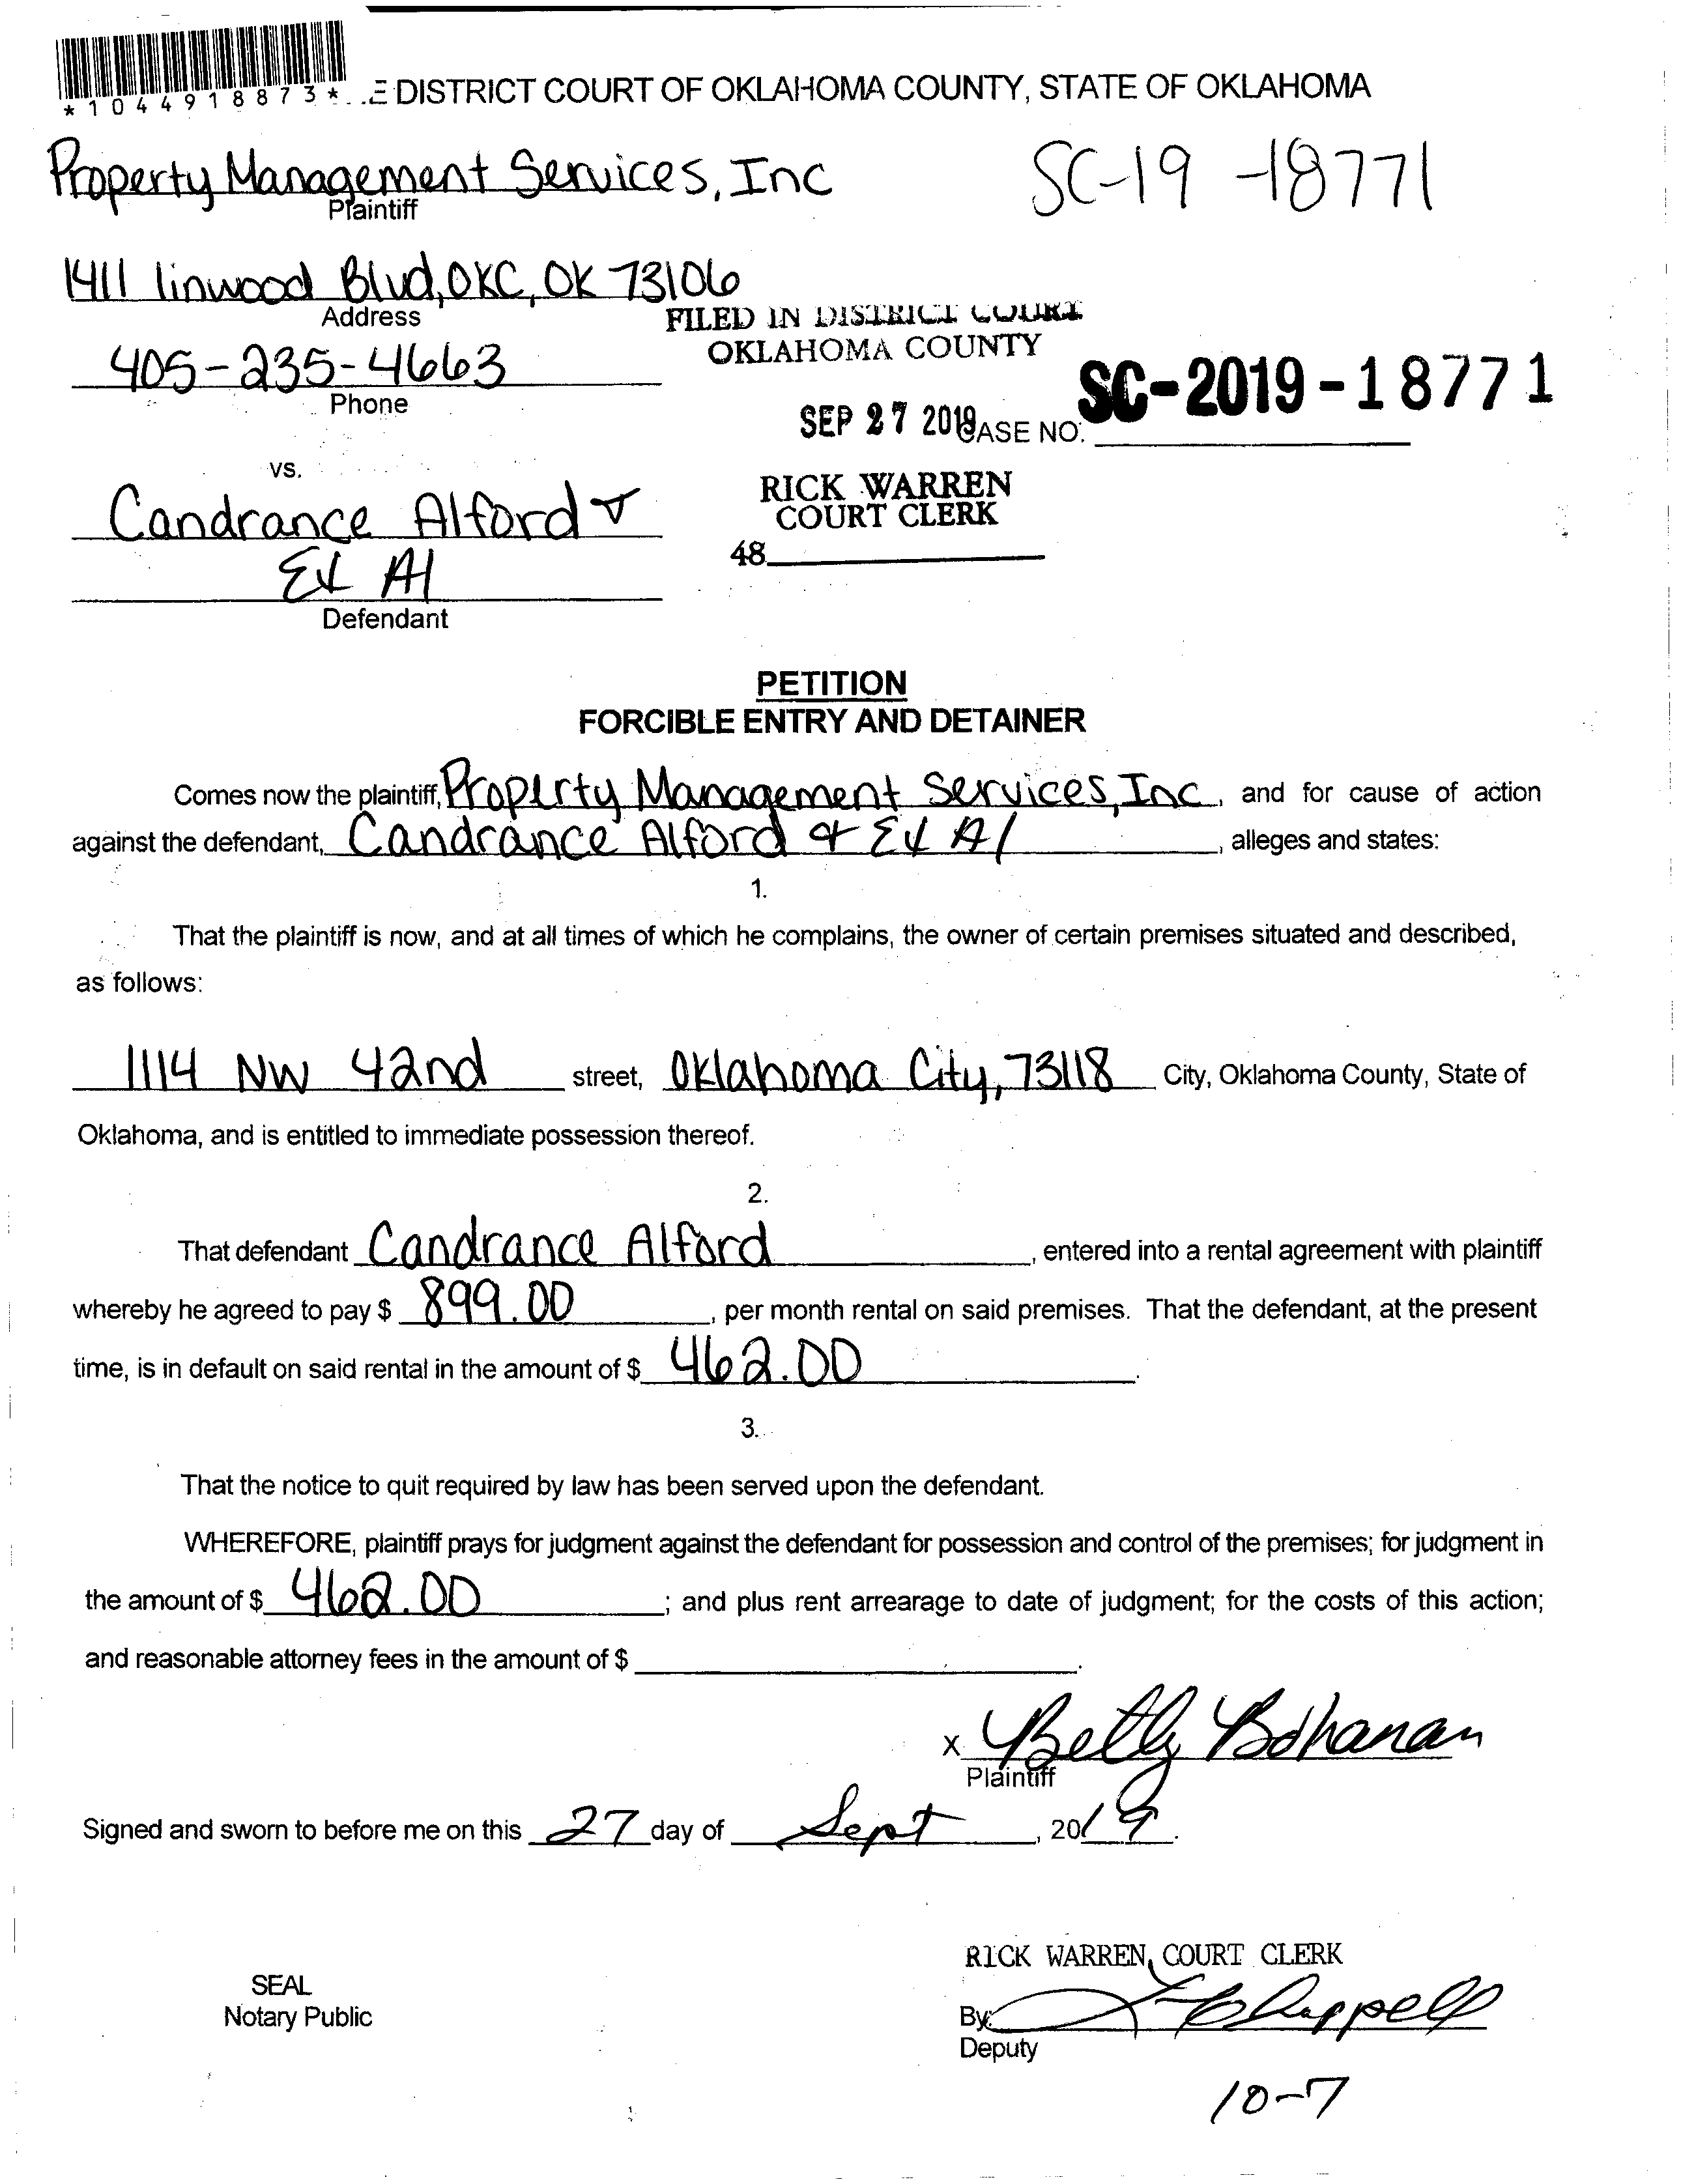 *1044918873*
E DISTRICT COURT OF OKLAHOMA COUNTY, STATE OF OKLAHOMA
Property Management Services, Inc
SC-19-18771
Plaintiff
1411 linwood Blvd, OKC, OK 73106
Address
FILED IN DISTRICT COURT
OKLAHOMA COUNTY
405-235-4663
Phone
SEP 27 2019
CASE NO. SC-2019-18771
vs.
RICK WARREN
COURT CLERK
48
Candrance Alford &
Et Al
Defendant
PETITION
FORCIBLE ENTRY AND DETAINER
Comes now the plaintiff, Property Management Services, Inc, and for cause of action
against the defendant, Candrance Alford & Et Al, alleges and states:
1.
That the plaintiff is now, and at all times of which he complains, the owner of certain premises situated and described,
as follows:
1114 NW 42nd street, Oklahoma City, 73118 City, Oklahoma County, State of
Oklahoma, and is entitled to immediate possession thereof.
2.
That defendant Candrance Alford, entered into a rental agreement with plaintiff
whereby he agreed to pay $ 899.00, per month rental on said premises. That the defendant, at the present
time, is in default on said rental in the amount of $ 462.00.
3.
That the notice to quit required by law has been served upon the defendant.
WHEREFORE, plaintiff prays for judgment against the defendant for possession and control of the premises; for judgment in
the amount of $ 462.00; and plus rent arrearage to date of judgment; for the costs of this action;
and reasonable attorney fees in the amount of $ .
x Betty Bohanan
Plaintiff
Signed and sworn to before me on this 27 day of Sept, 2019.
RICK WARREN, COURT CLERK
SEAL
Notary Public
By: Chappell
Deputy
10-7